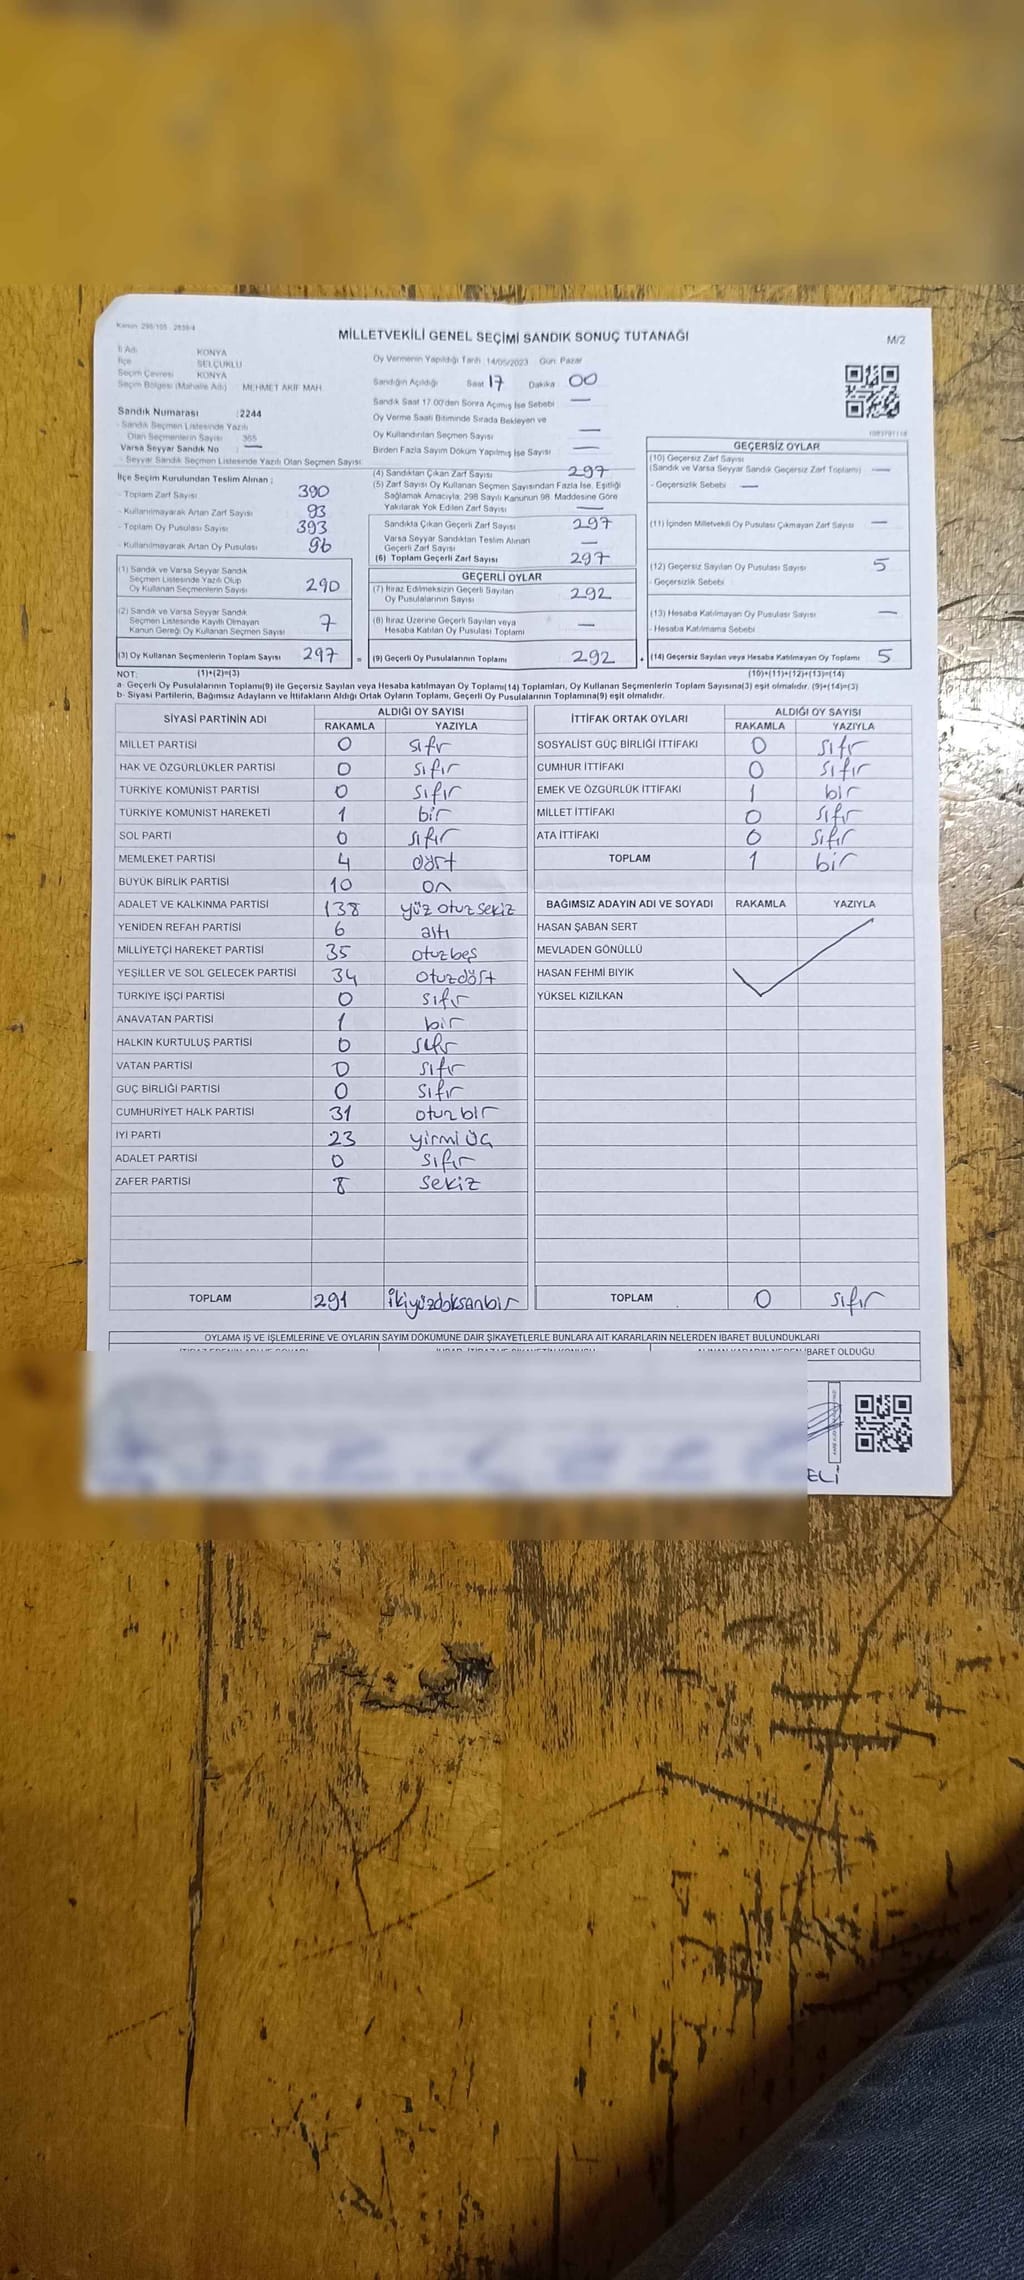 Kanun: 298/105 - 2839/4
MİLLETVEKİLİ GENEL SEÇİMİ SANDIK SONUÇ TUTANAĞI
M/2
İl Adı KONYA
İlçe SELÇUKLU
Seçim Çevresi KONYA
Seçim Bölgesi (Mahalle Adı) MEHMET AKİF MAH.
Sandık Numarası :2244
- Sandık Seçmen Listesinde Yazılı
Olan Seçmenlerin Sayısı 365
Varsa Seyyar Sandık No —
- Seyyar Sandık Seçmen Listesinde Yazılı Olan Seçmen Sayısı
İlçe Seçim Kurulundan Teslim Alınan ;
- Toplam Zarf Sayısı 390
- Kullanılmayarak Artan Zarf Sayısı 93
- Toplam Oy Pusulası Sayısı 393
- Kullanılmayarak Artan Oy Pusulası 96
(1) Sandık ve Varsa Seyyar Sandık
Seçmen Listesinde Yazılı Olup
Oy Kullanan Seçmenlerin Sayısı 290
(2) Sandık ve Varsa Seyyar Sandık
Seçmen Listesinde Kayıtlı Olmayan
Kanun Gereği Oy Kullanan Seçmen Sayısı 7
(3) Oy Kullanan Seçmenlerin Toplam Sayısı 297 =
Oy Vermenin Yapıldığı Tarih :14/05/2023 Gün: Pazar
Sandığın Açıldığı Saat 17 Dakika 00
Sandık Saat 17.00'den Sonra Açımış İse Sebebi —
Oy Verme Saati Bitiminde Sırada Bekleyen ve
Oy Kullandırılan Seçmen Sayısı —
Birden Fazla Sayım Döküm Yapılmış İse Sayısı —
(4) Sandıktan Çıkan Zarf Sayısı 297
(5) Zarf Sayısı Oy Kullanan Seçmen Sayısından Fazla İse, Eşitliği
Sağlamak Amacıyla, 298 Sayılı Kanunun 98. Maddesine Göre
Yakılarak Yok Edilen Zarf Sayısı —
Sandıkta Çıkan Geçerli Zarf Sayısı 297
Varsa Seyyar Sandıktan Teslim Alınan
Geçerli Zarf Sayısı —
(6) Toplam Geçerli Zarf Sayısı 297
GEÇERLİ OYLAR
(7) İtiraz Edilmeksizin Geçerli Sayılan
Oy Pusulalarının Sayısı 292
(8) İtiraz Üzerine Geçerli Sayılan veya
Hesaba Katılan Oy Pusulası Toplamı —
(9) Geçerli Oy Pusulalarının Toplamı 292 +
GEÇERSİZ OYLAR
(10) Geçersiz Zarf Sayısı
(Sandık ve Varsa Seyyar Sandık Geçersiz Zarf Toplamı) —
- Geçersizlik Sebebi —
(11) İçinden Milletvekili Oy Pusulası Çıkmayan Zarf Sayısı —
(12) Geçersiz Sayılan Oy Pusulası Sayısı 5
- Geçersizlik Sebebi
(13) Hesaba Katılmayan Oy Pusulası Sayısı —
- Hesaba Katılmama Sebebi
(14) Geçersiz Sayılan veya Hesaba Katılmayan Oy Toplamı 5
NOT: (1)+(2)=(3) (10)+(11)+(12)+(13)=(14)
a- Geçerli Oy Pusulalarının Toplamı(9) ile Geçersiz Sayılan veya Hesaba katılmayan Oy Toplamı(14) Toplamları, Oy Kullanan Seçmenlerin Toplam Sayısına(3) eşit olmalıdır. (9)+(14)=(3)
b- Siyasi Partilerin, Bağımsız Adayların ve İttifakların Aldığı Ortak Oyların Toplamı, Geçerli Oy Pusulalarının Toplamına(9) eşit olmalıdır.
SİYASİ PARTİNİN ADI ALDIĞI OY SAYISI
RAKAMLA YAZIYLA
MİLLET PARTİSİ 0 sıfır
HAK VE ÖZGÜRLÜKLER PARTİSİ 0 sıfır
TÜRKİYE KOMÜNİST PARTİSİ 0 sıfır
TÜRKİYE KOMÜNİST HAREKETİ 1 bir
SOL PARTİ 0 sıfır
MEMLEKET PARTİSİ 4 dört
BÜYÜK BİRLİK PARTİSİ 10 on
ADALET VE KALKINMA PARTİSİ 138 yüz otuz sekiz
YENİDEN REFAH PARTİSİ 6 altı
MİLLİYETÇİ HAREKET PARTİSİ 35 otuzbeş
YEŞİLLER VE SOL GELECEK PARTİSİ 34 otuzdört
TÜRKİYE İŞÇİ PARTİSİ 0 sıfır
ANAVATAN PARTİSİ 1 bir
HALKIN KURTULUŞ PARTİSİ 0 sıfır
VATAN PARTİSİ 0 sıfır
GÜÇ BİRLİĞİ PARTİSİ 0 sıfır
CUMHURİYET HALK PARTİSİ 31 otuzbir
İYİ PARTİ 23 yirmi üç
ADALET PARTİSİ 0 sıfır
ZAFER PARTİSİ 8 sekiz
TOPLAM 291 ikiyüzdoksanbir
İTTİFAK ORTAK OYLARI ALDIĞI OY SAYISI
RAKAMLA YAZIYLA
SOSYALİST GÜÇ BİRLİĞİ İTTİFAKI 0 sıfır
CUMHUR İTTİFAKI 0 sıfır
EMEK VE ÖZGÜRLÜK İTTİFAKI 1 bir
MİLLET İTTİFAKI 0 sıfır
ATA İTTİFAKI 0 sıfır
TOPLAM 1 bir
BAĞIMSIZ ADAYIN ADI VE SOYADI RAKAMLA YAZIYLA
HASAN ŞABAN SERT
MEVLADEN GÖNÜLLÜ
HASAN FEHMİ BIYIK
YÜKSEL KIZILKAN
TOPLAM 0 sıfır
OYLAMA İŞ VE İŞLEMLERİNE VE OYLARIN SAYIM DÖKÜMÜNE DAİR ŞİKAYETLERLE BUNLARA AİT KARARLARIN NELERDEN İBARET BULUNDUKLARI
İBARET OLDUĞU
ELİ